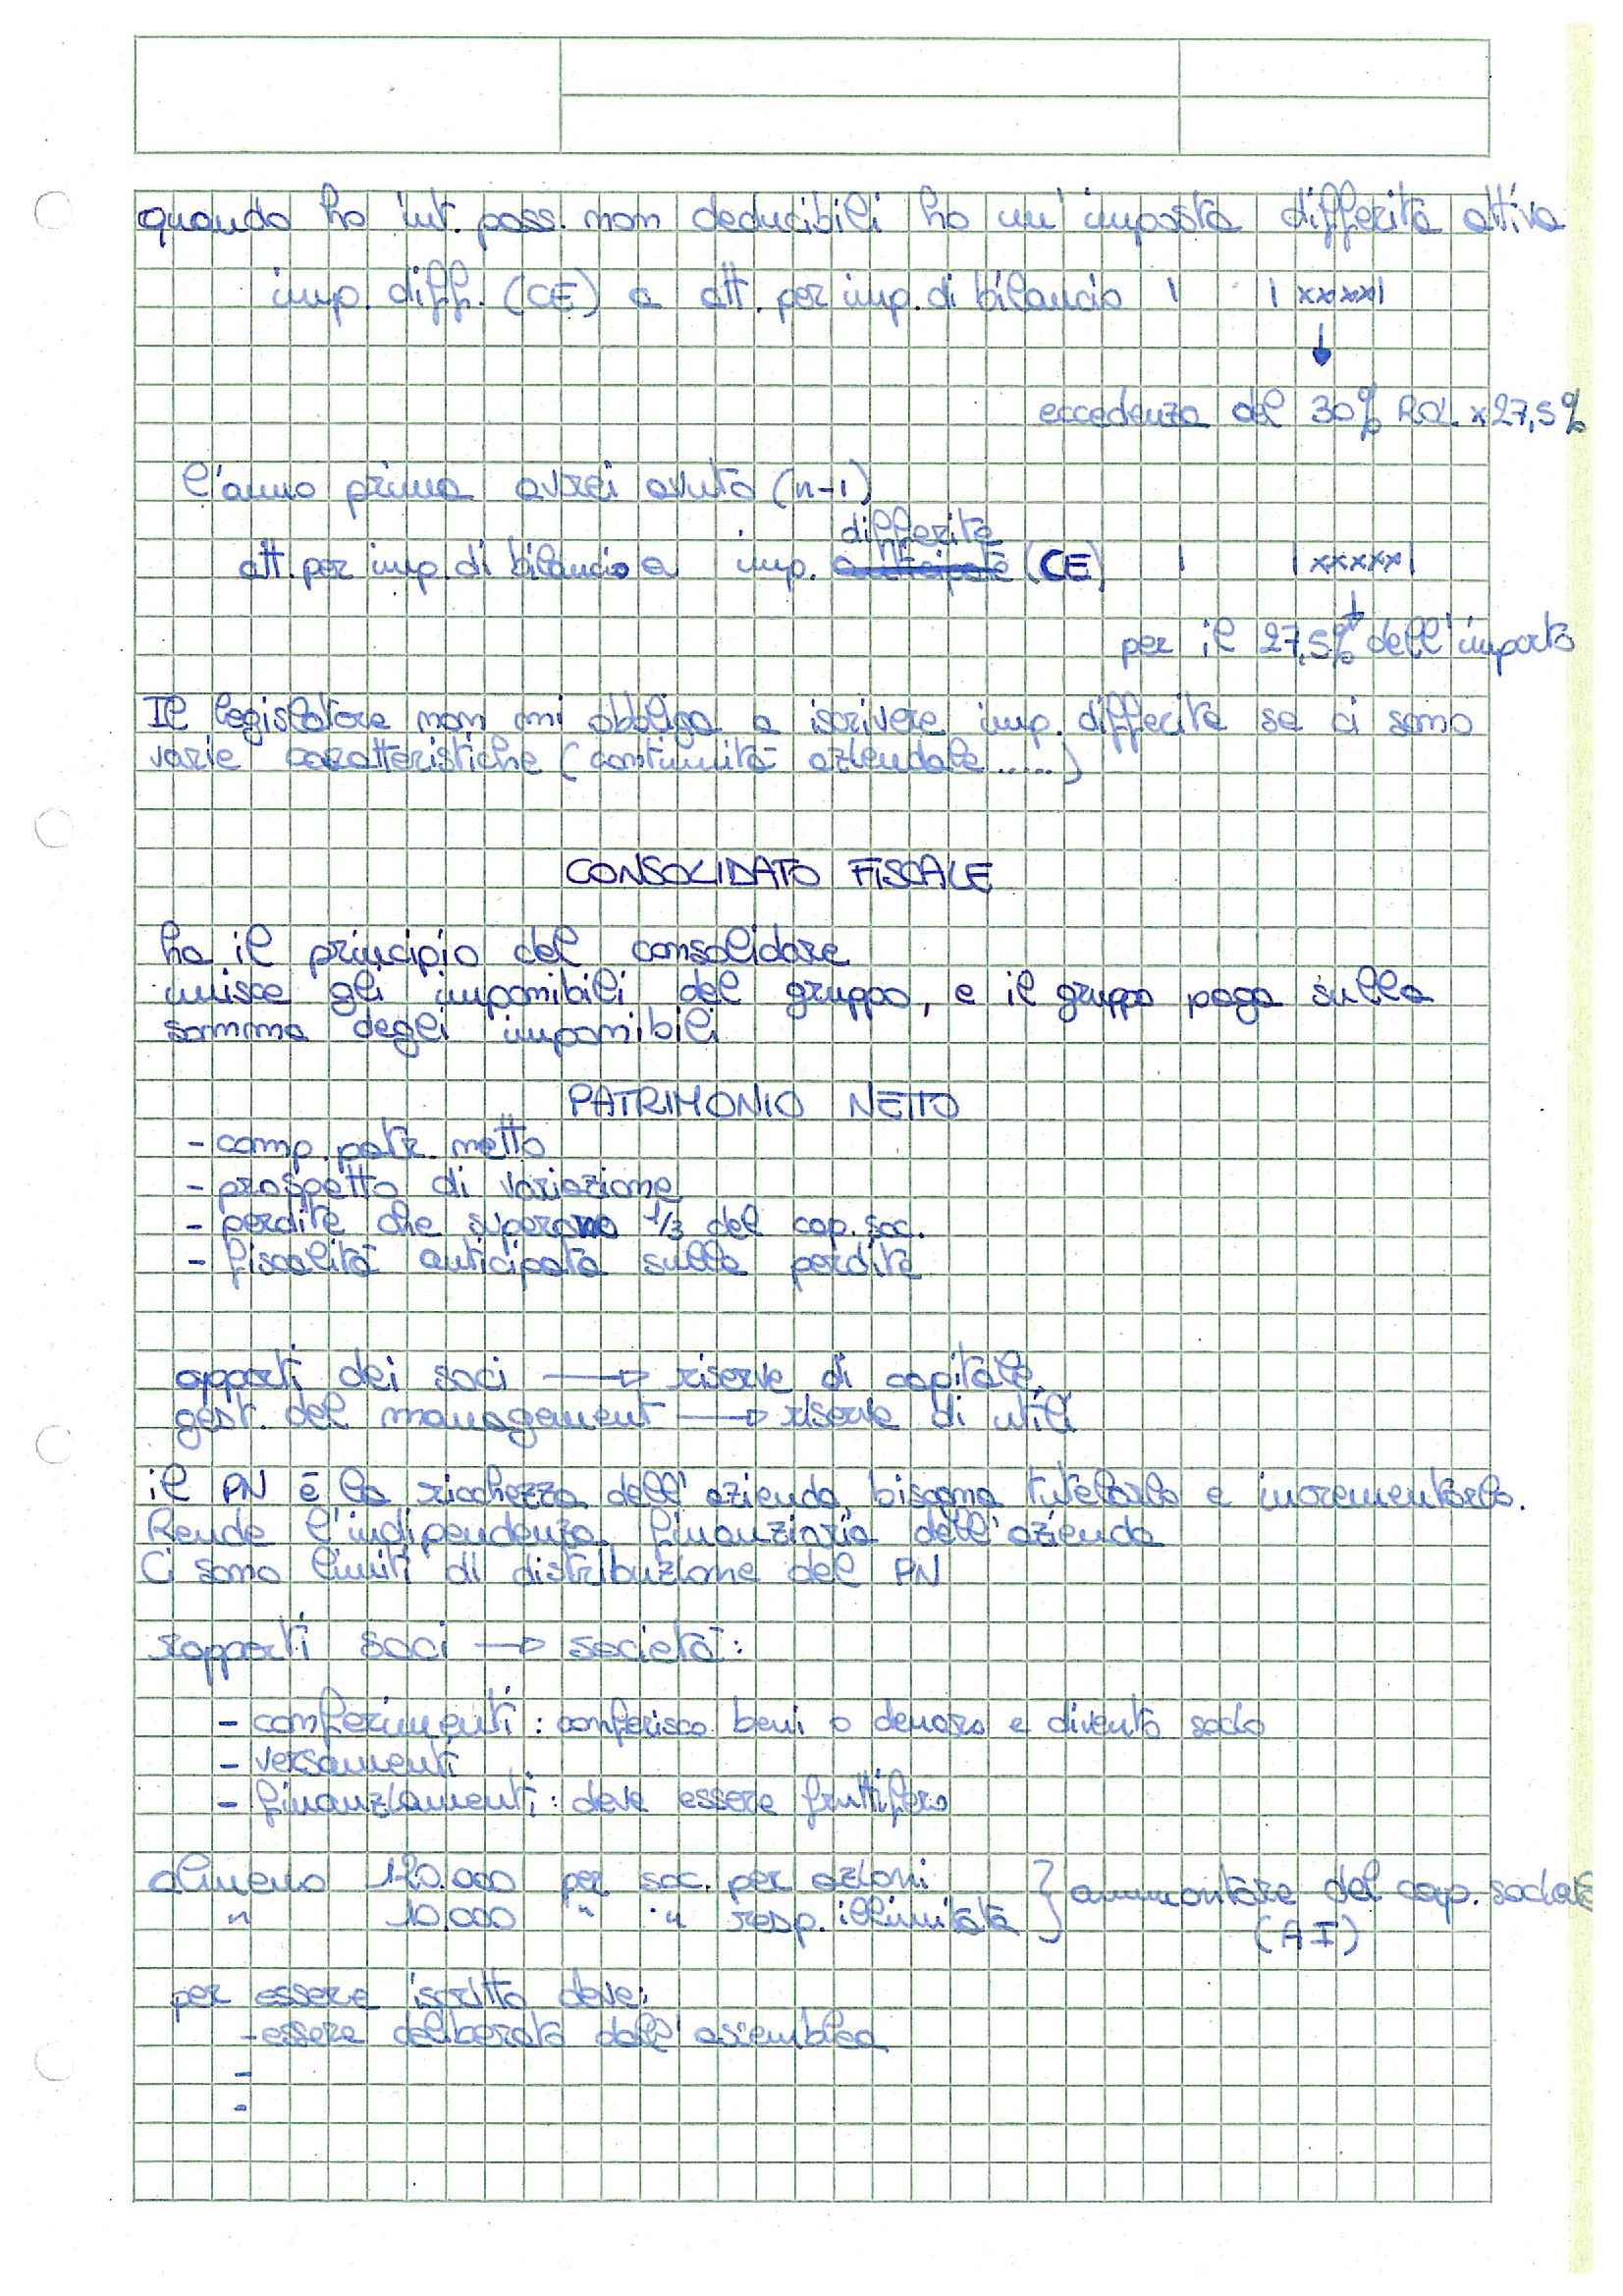 quando ho int. pass. non deducibili ho un'imposta differita attiva
imp. diff. (CE) a att. per imp. di bilancio | | xxxxx |
eccedenza del 30% ROL x 27,5%
l'anno prima avrei avuto (n-1)
differite
att. per imp. di bilancio a imp. anticipate (CE) | | xxxxx |
per il 27,5% dell'importo
Il legislatore non mi obbliga a iscrivere imp. differite se ci sono
varie caratteristiche (continuità aziendale .....)
CONSOLIDATO FISCALE
ha il principio del consolidare
unisce gli imponibili del gruppo, e il gruppo paga sulla
somma degli imponibili
PATRIMONIO NETTO
- comp. patr. netto
- prospetto di variazione
- perdite che superano 1/3 del cap. soc.
- fiscalità anticipata sulle perdite
apporti dei soci → riserve di capitale
gest. del management → riserve di utili
il PN è la ricchezza dell'azienda, bisogna tutelarlo e incrementarlo.
Rende l'indipendenza finanziaria dell'azienda
Ci sono limiti di distribuzione del PN
rapporti soci → società:
- conferimenti: conferisco beni o denaro e divento socio
- versamenti
- finanziamenti: deve essere fruttifero
almeno 120.000 per soc. per azioni } ammontare del cap. sociale
" 10.000 " " resp. illimitata (A I)
per essere iscritto deve:
- essere deliberato dall'assemblea
-
-